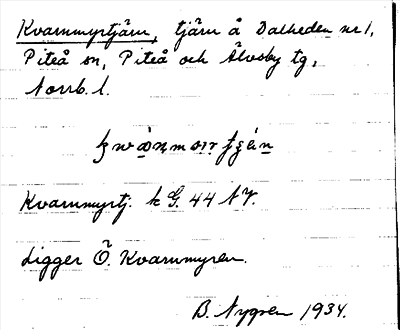 Kvarnmyrtjärn, tjärn å Dalheden nr 1,
Piteå sn, Piteå och Älvsby tg,
Norrb. l.
Kvarnmyrtj. k G. 44 NV.
Ligger Ö. Kvarnmyren.
B. Nygren 1934.